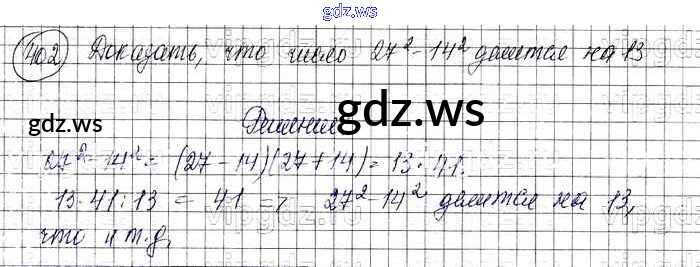 gdz.ws
402 Доказать, что число 27² - 14² делится на 13
gdz.ws
Решение
gdz.ws
27² - 14² = (27 - 14)(27 + 14) = 13 · 41.
13 · 41 : 13 = 41 => 27² - 14² делится на 13,
что и т.д.